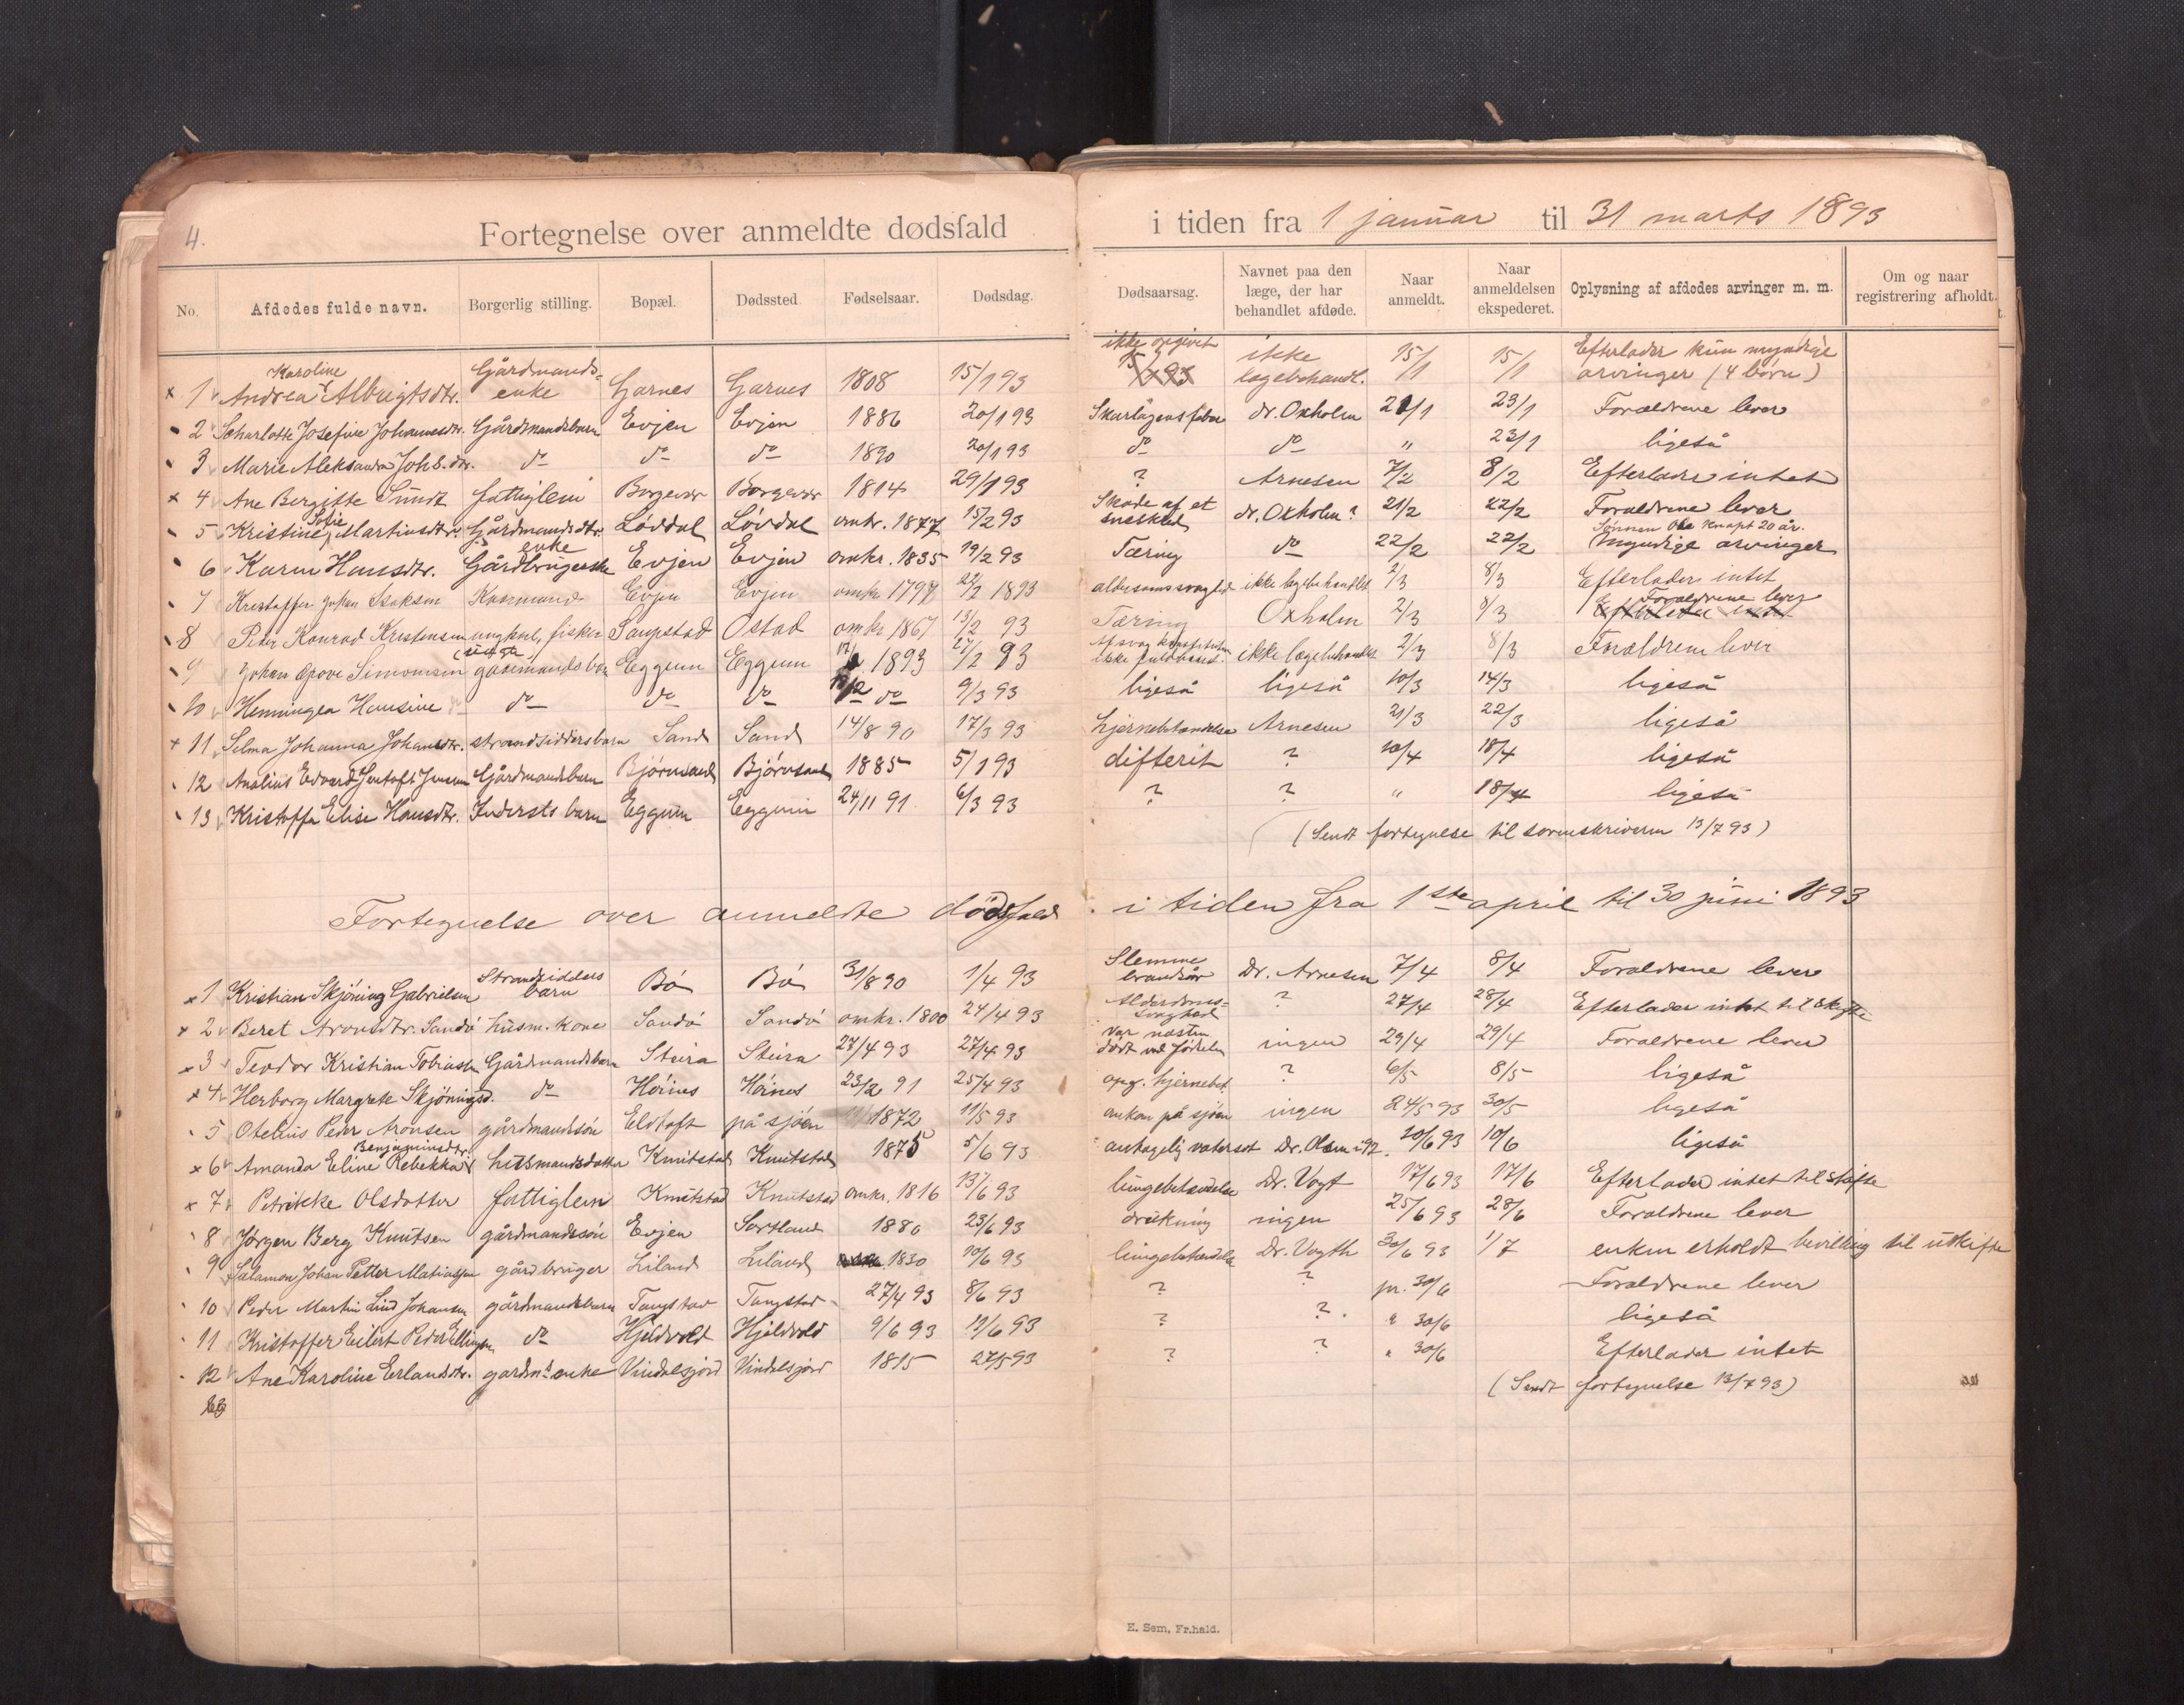 4.
Fortegnelse over anmeldte dødsfald i tiden fra 1 januar til 31 marts 1893
No. Afdødes fulde navn. Borgerlig stilling. Bopæl. Dødssted. Fødselsaar. Dødsdag. Dødsaarsag. Navnet paa den læge, der har behandlet afdøde. Naar anmeldt. Naar anmeldelsen ekspederet. Oplysning af afdødes arvinger m. m. Om og naar registrering afholdt.
1 Andrea Karoline Albrigtsdtr. Gårdmands- enke Garnes Garnes 1808 15/1 93 ikke opgivet ikke lægebehandl. 15/1 15/1 Efterlader kun myndige arvinger (4 børn)
2 Scharlotte Josefine Johannesdtr. Gårdmandsbarn Evjen Evjen 1886 20/1 93 Skarlagensfeber dr. Oxholm 21/1 23/1 Forældrene lever
3 Marie Aleksandra Johs.dtr. do do do 1890 20/1 93 do do " 23/1 ligeså
4 Ane Bergitte Sundt fattiglem Borgevær Borgevær 1814 29/1 93 ? Arnesen 7/2 8/2 Efterlader intet
5 Kristine Sofie Martinsdtr. Gårdmandsdtr. Løvdal Løvdal omkr. 1877 15/2 93 Skade af et sneskred dr. Oxholm? 21/2 22/2 Forældrene lever
6 Karen Hansdtr. Gårdbrugerske enke Evjen Evjen omkr. 1835 19/2 93 Tæring do 22/2 22/2 Sønnen Ole knapt 20 år. Myndige arvinger
7 Kristoffer Johan Isaksen Kaarmand Evjen Evjen omkr 1797 22/2 1893 alderdomssvaghed ikke lægebehandlet 2/3 8/3 Efterlader intet
8 Peder Konrad Kristensen ungkarl, fisker Saupstad Ostad omkr 1867 13/2 93 Tæring Oxholm 2/3 8/3 Forældrene lever
9 Johan Agove Simonsen gaardmandsbarn Eggum Eggum 1893 27/2 93 Af svag konstitution ikke fuldbaaret. ikke lægebehandlet 2/3 8/3 Forældrene lever
10 Henningea Hansine do do do do 9/3 93 ligeså ligeså 10/3 14/3 ligeså
11 Selma Johanna Johansdtr. strandsiddersbarn Sand Sand 14/8 90 17/3 93 hjernebetændelse Arnesen 21/3 22/3 ligeså
12 Analius Edvard Jentoft Jensen Gårdmandsbarn Bjørnsand Bjørnsand 1885 5/1 93 difterit ? 10/4 18/4 ligeså
13 Kristoffa Elise Hansdtr. Indersts barn Eggum Eggum 24/11 91 6/3 93 ? ? " 18/4 ligeså
(Sendt fortegnelse til sorenskriveren 13/7 93)
Fortegnelse over anmeldte dødsfald i tiden fra 1ste april til 30 juni 1893
1 Kristian Skjøning Gabrielsen Strandsidders barn Bø Bø 31/8 90 1/4 93 Slemme brandsår Dr. Arnesen 7/4 8/4 Forældrene lever
2 Beret Aronsdtr. Sandø husm. kone Sandø Sandø omkr. 1800 24/4 93 Alderdoms- svaghed ? 27/4 28/4 Efterlader intet til skifte
3 Teodor Kristian Tobiassen Gårdmandsbarn Steira Steira 27/4 93 27/4 93 var næsten dødt ved fødselen ingen 29/4 29/4 Forældrene lever
4 Herborg Margrete Skjøningsd. do Høines Høines 23/2 91 25/4 93 opg. hjernebet ? 6/5 8/5 ligeså
5 Otelius Peder Aronsen gårdmandssøn Eltoft på sjøen 1872 11/5 93 omkom på sjøen ingen 24/5 93 30/5 ligeså
6 Amanda Eline Rebekka Benjaminsdtr. husmandsdatter Knutstad Knutstad 1875 5/6 93 antagelig vatersot Dr. Olsen i 92. 10/6 93 10/6 ligeså
7 Petrikke Olsdatter fattiglem Knutstad Knutstad omkr. 1816 13/6 93 lungebetændelse Dr. Vogt 17/6 93 17/6 Efterlader intet til skifte
8 Jørgen Berg Knutsen gårdmandssøn Evjen Sortland 1880 23/6 93 drukning ingen 25/6 93 28/6 Forældrene lever
9 Salamon Johan Petter Matiassen gårdbruger Liland Liland 1830 10/6 93 lungebetændelse Dr. Vogth 30/6 93 1/7 enken erholdt bevilling til uskifte
10 Peder Martin Lind Johansen gårdmandsbarn Tangstad Tangstad 27/4 93 8/6 93 ? ? pr. 30/6 Forældrene lever
11 Kristoffer Eilert Peder Ellingsen do Hjeldvold Hjeldvold 9/6 93 12/6 93 ? ? " 30/6 ligeså
12 Ane Karoline Erlandsdtr. gardm's enke Vindelsjord Vindelsjord 1815 27/5 93 ? ? " 30/6 Efterlader intet
(Sendt fortegnelse 13/7 93)
E. Sem, Fr.hald.